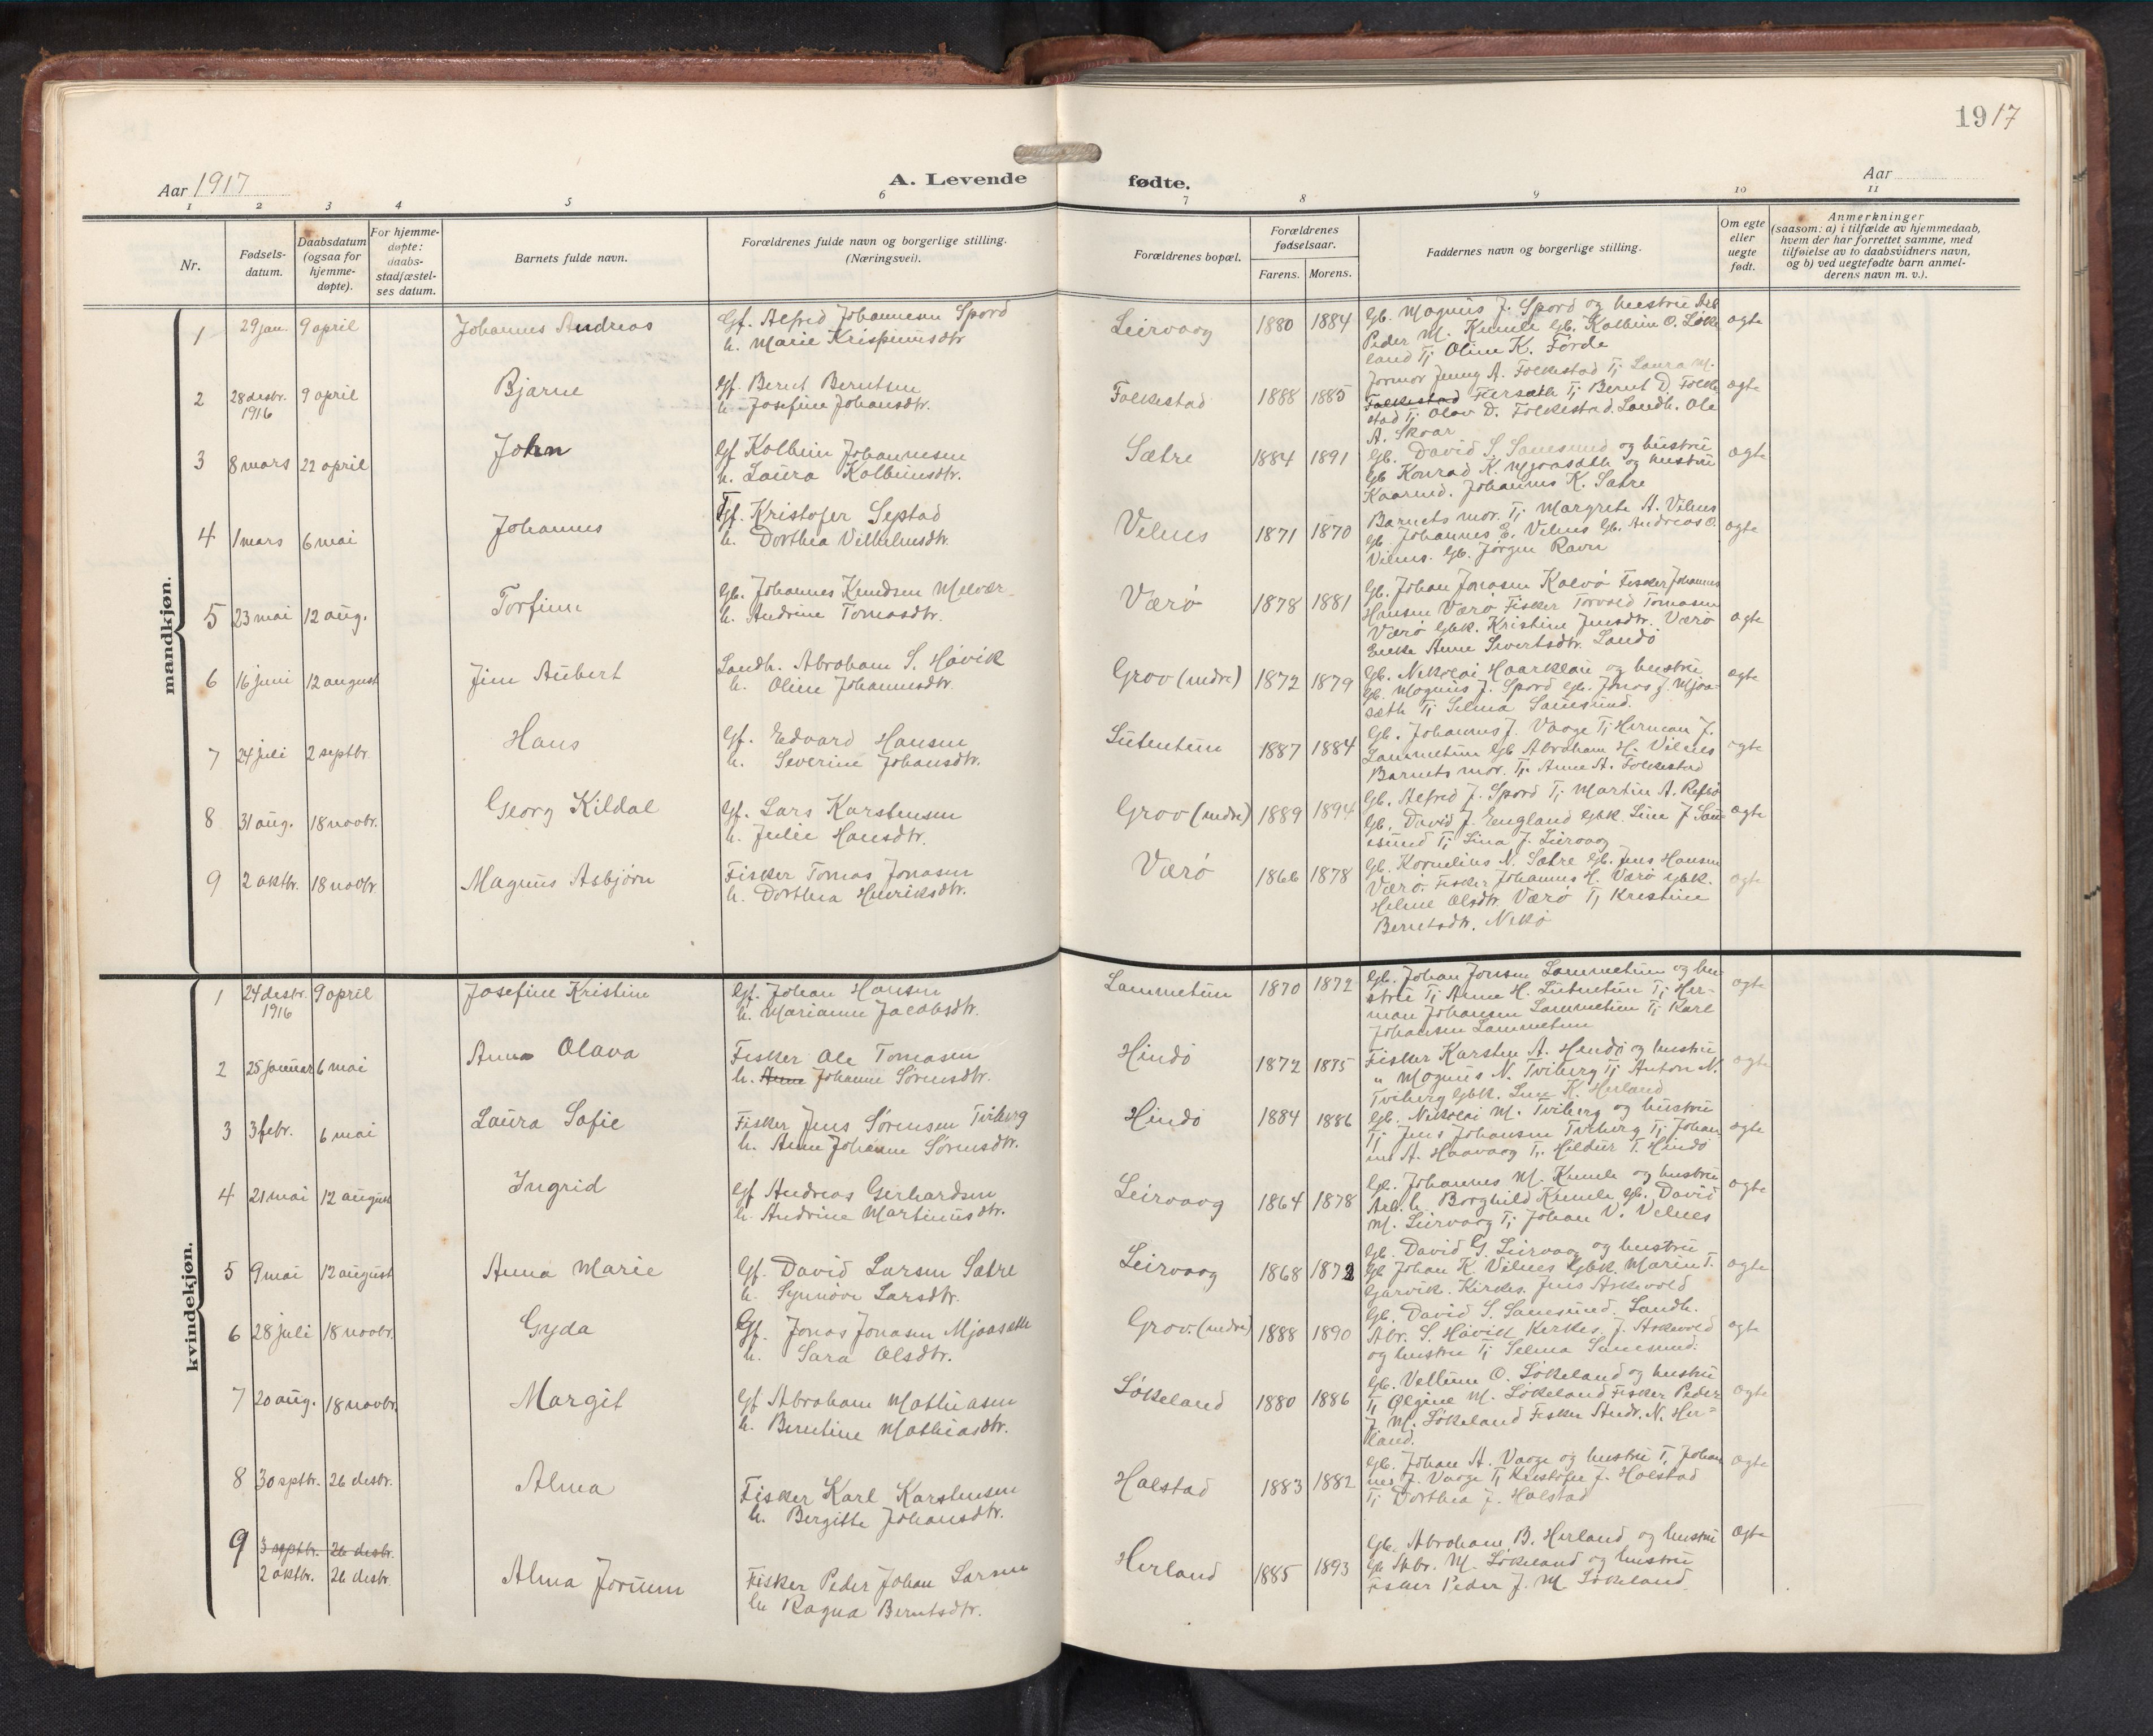 1917
Aar 1917
A. Levende
fødte.
Aar
1 2 3 4 5 6 7 8 9 10 11
Nr.
Fødsels-
datum.
Daabsdatum
(ogsaa for
hjemme-
døpte).
For hjemme-
døpte:
daabs-
stadfæstel-
ses datum.
Barnets fulde navn.
Forældrenes fulde navn og borgerlige stilling.
(Næringsvei).
Forældrenes bopæl.
Forældrenes
fødselsaar.
Farens. Morens.
Faddernes navn og borgerlige stilling.
Om egte
eller
uegte
født.
Anmerkninger
(saasom: a) i tilfælde av hjemmedaab,
hvem der har forrettet samme, med
tilføielse av to daabsvidners navn,
og b) ved uegtefødte barn anmel-
derens navn m. v.).
mandkjøn.
1 29 jan. 9 april Johannes Andreas Gf. Alfred Johannesen Spord
h. Marie Krispinusdtr.
Leirvaag 1880 1884 Gb. Magnus J. Spord og hustru Arb
Peder M. Kumle Gb. Kolbein O. Løke
land Tj Oline K. Førde
ægte
2 28 desbr. 1916 9 april Bjarne Gf. Bernt Berntsen
h. Josefine Johansdtr.
Folkestad 1888 1885 Jormor Jenny A. Folkestad Tj Laura M.
Folkestad Tj Bernt D. Folke
stad Tj Olav D. Folkestad. Landh. Ole
A. Skaar
ægte
3 8 mars 22 april John Gf Kolbein Johannesen
h. Laura Kolbeinsdtr.
Sætre 1884 1891 Gb. David S. Sauesund og hustru
Gb Konrad K. Mjaasæth og hustru
Kaarmd. Johannes K. Sætre
ægte
4 1 mars 6 mai Johannes Gf. Kristofer Septad
h. Dorthea Vilhelmsdtr.
Vilnes 1871 1870 Barnets mor. Tj Margrete A. Vilnes
Gb. Johannes E. Vilnes Gb. Andreas O.
Vilnes. Gb. Jørgen Ravn
ægte
5 23 mai 12 aug. Torfinn Gb. Johannes Knudsen Melvær
h. Andrine Tomasdtr.
Værø 1878 1881 Gb. Johan Jonasen Kalvø Fisker Johannes
Hansen Værø Fisker Torvald Tomasen
Værø Gbk. Kristine Jensdtr. Værø
Enke Anne Sivertsdtr. Landø
ægte
6 16 juni 12 august Jim Aubert Landh. Abraham S. Høvik
h. Oline Johannesdtr.
Grov (nedre) 1872 1879 Gb. Nikolai Haarklau og hustru
Gb. Magnus J. Spord Gb. Jonas J. Mjaa-
sæth Tj Selma Sauesund.
ægte
7 24 juli 2 septbr. Hans Gf. Edvard Hansen
h. Severine Johansdtr.
Lutentun 1887 1884 Gb. Johannes J. Vaage Tj Herman J.
Lammetun Gb Abraham H. Vilnes
Barnets mor. Tj Anne A. Folkestad
ægte
8 31 aug. 18 novbr. Georg Kildal Gf. Lars Karstensen
h. Julie Hansdtr.
Grov (nedre) 1889 1894 Gb. Alfred J. Spord Tj Martin A. Refsø
Gb. David J. England Gbk. Line J Sau
esund Tj Lina J. Leirvaag
ægte
9 2 oktbr. 18 novbr Magnus Asbjørn Fisker Tomas Jonasen
h. Dorthea Henriksdtr.
Værø 1866 1878 Gb. Kornelius N. Sætre Gb. Jens Hansen
Værø. Fisker Johannes H. Værø Gbk.
Helene Olsdtr Værø Tj Kristine
Berntsdtr. Nekø
ægte
kvindekjøn.
1 24 desbr. 1916 9 april Josefine Kristine Gf. Johan Hansen
h. Marianne Jacobsdtr.
Lammetun 1870 1872 Gb. Johan Jonsen Lammetun og hu-
stru Tj Anne H. Lutentun Tj Her-
man Johansen Lammetun Tj Karl
Johansen Lammetun
ægte
2 25 januar 6 mai Anna Olava Fisker Ole Tomasen
h. Anne Johanne Sørensdtr.
Hindø 1872 1875 Fisker Karsten A. Hindø og hustru
" Magnus N. Tviberg Tj Anton N.
Tviberg Gbk. Line K. Herland
ægte
3 3 febr. 6 mai Laura Sofie Fisker Jens Sørensen Tviberg
h. Anne Johanne Sørensdtr.
Hindø 1884 1886 Gb. Nikolai M. Tviberg og hustru
Tj Jens Johansen Tviberg Tj Johan
ne A. Haavaag Tj. Hildur T. Hindø
ægte
4 21 mai 12 august Ingrid Gf Andreas Gerhardsen
h. Andrine Martinusdtr.
Leirvaag 1864 1878 Gb. Johannes M. Kumle og hustru
Arb. h. Borghild Kumle Gb. David
M. Leirvaag Tj Johan V. Vilnes
ægte
5 9 mai 12 august Anna Marie Gf. David Larsen Sætre
h. Synnøve Larsdtr.
Leirvaag 1868 1872 Gb. David G. Leirvaag og hustru
Gb Johan K. Vilnes Gbk. Marin T.
Garvik. Kirkes. Jens Askevold
ægte
6 28 juli 18 novbr. Gyda Gf. Jonas Jonasen Mjaasæth
h. Sara Olsdtr.
Grov (nedre) 1888 1890 Gb. David S. Sauesund. Landh.
Abr. S. Høvik Kirkes. J. Askevold
og hustru Tj Selma Sauesund.
ægte
7 20 aug. 18 novbr. Margit Gf Abraham Mathiasen
h. Berntine Mathiasdtr.
Løkeland 1880 1886 Gb. Vellum O. Løkeland og hustru
Tj Olgine M. Løkeland Fisker Peder
J. M. Løkeland Fisker Andr. N. Her=
land.
ægte
8 30 sptbr. 26 desbr. Alma Fisker Karl Karstensen
h. Bergitte Johansdtr.
Halstad 1883 1882 Gb. Johan A. Vaage og hustru Tj Johan
nes J. Vaage Tj Kristofer J. Halstad
Tj Dorthea J. Halstad
ægte
9 3 septbr. 26 desbr.
2 oktbr. 26 desbr Alma Jorunn Fisker Peder Johan Larsen
h. Ragna Berntsdtr.
Herland 1885 1893 Gb. Abraham B. Herland og hustru
Gb Abr. M. Løkeland og hustru
Fisker Peder J. M. Løkeland.
ægte